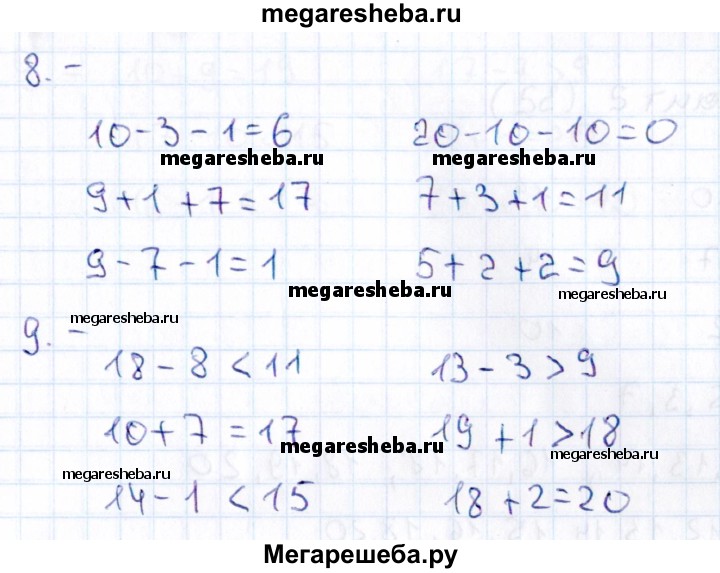 megaresheba.ru
8. -
10-3-1=6 20-10-10=0
megaresheba.ru megaresheba.ru
9+1+7=17 7+3+1=11
9-7-1=1 5+2+2=9
megaresheba.ru megaresheba.ru
9. - megaresheba.ru
18-8<11 13-3>9
10+7=17 19+1>18
megaresheba.ru megaresheba.ru
megaresheba.ru
14-1<15 18+2=20
Мегарешеба.ру